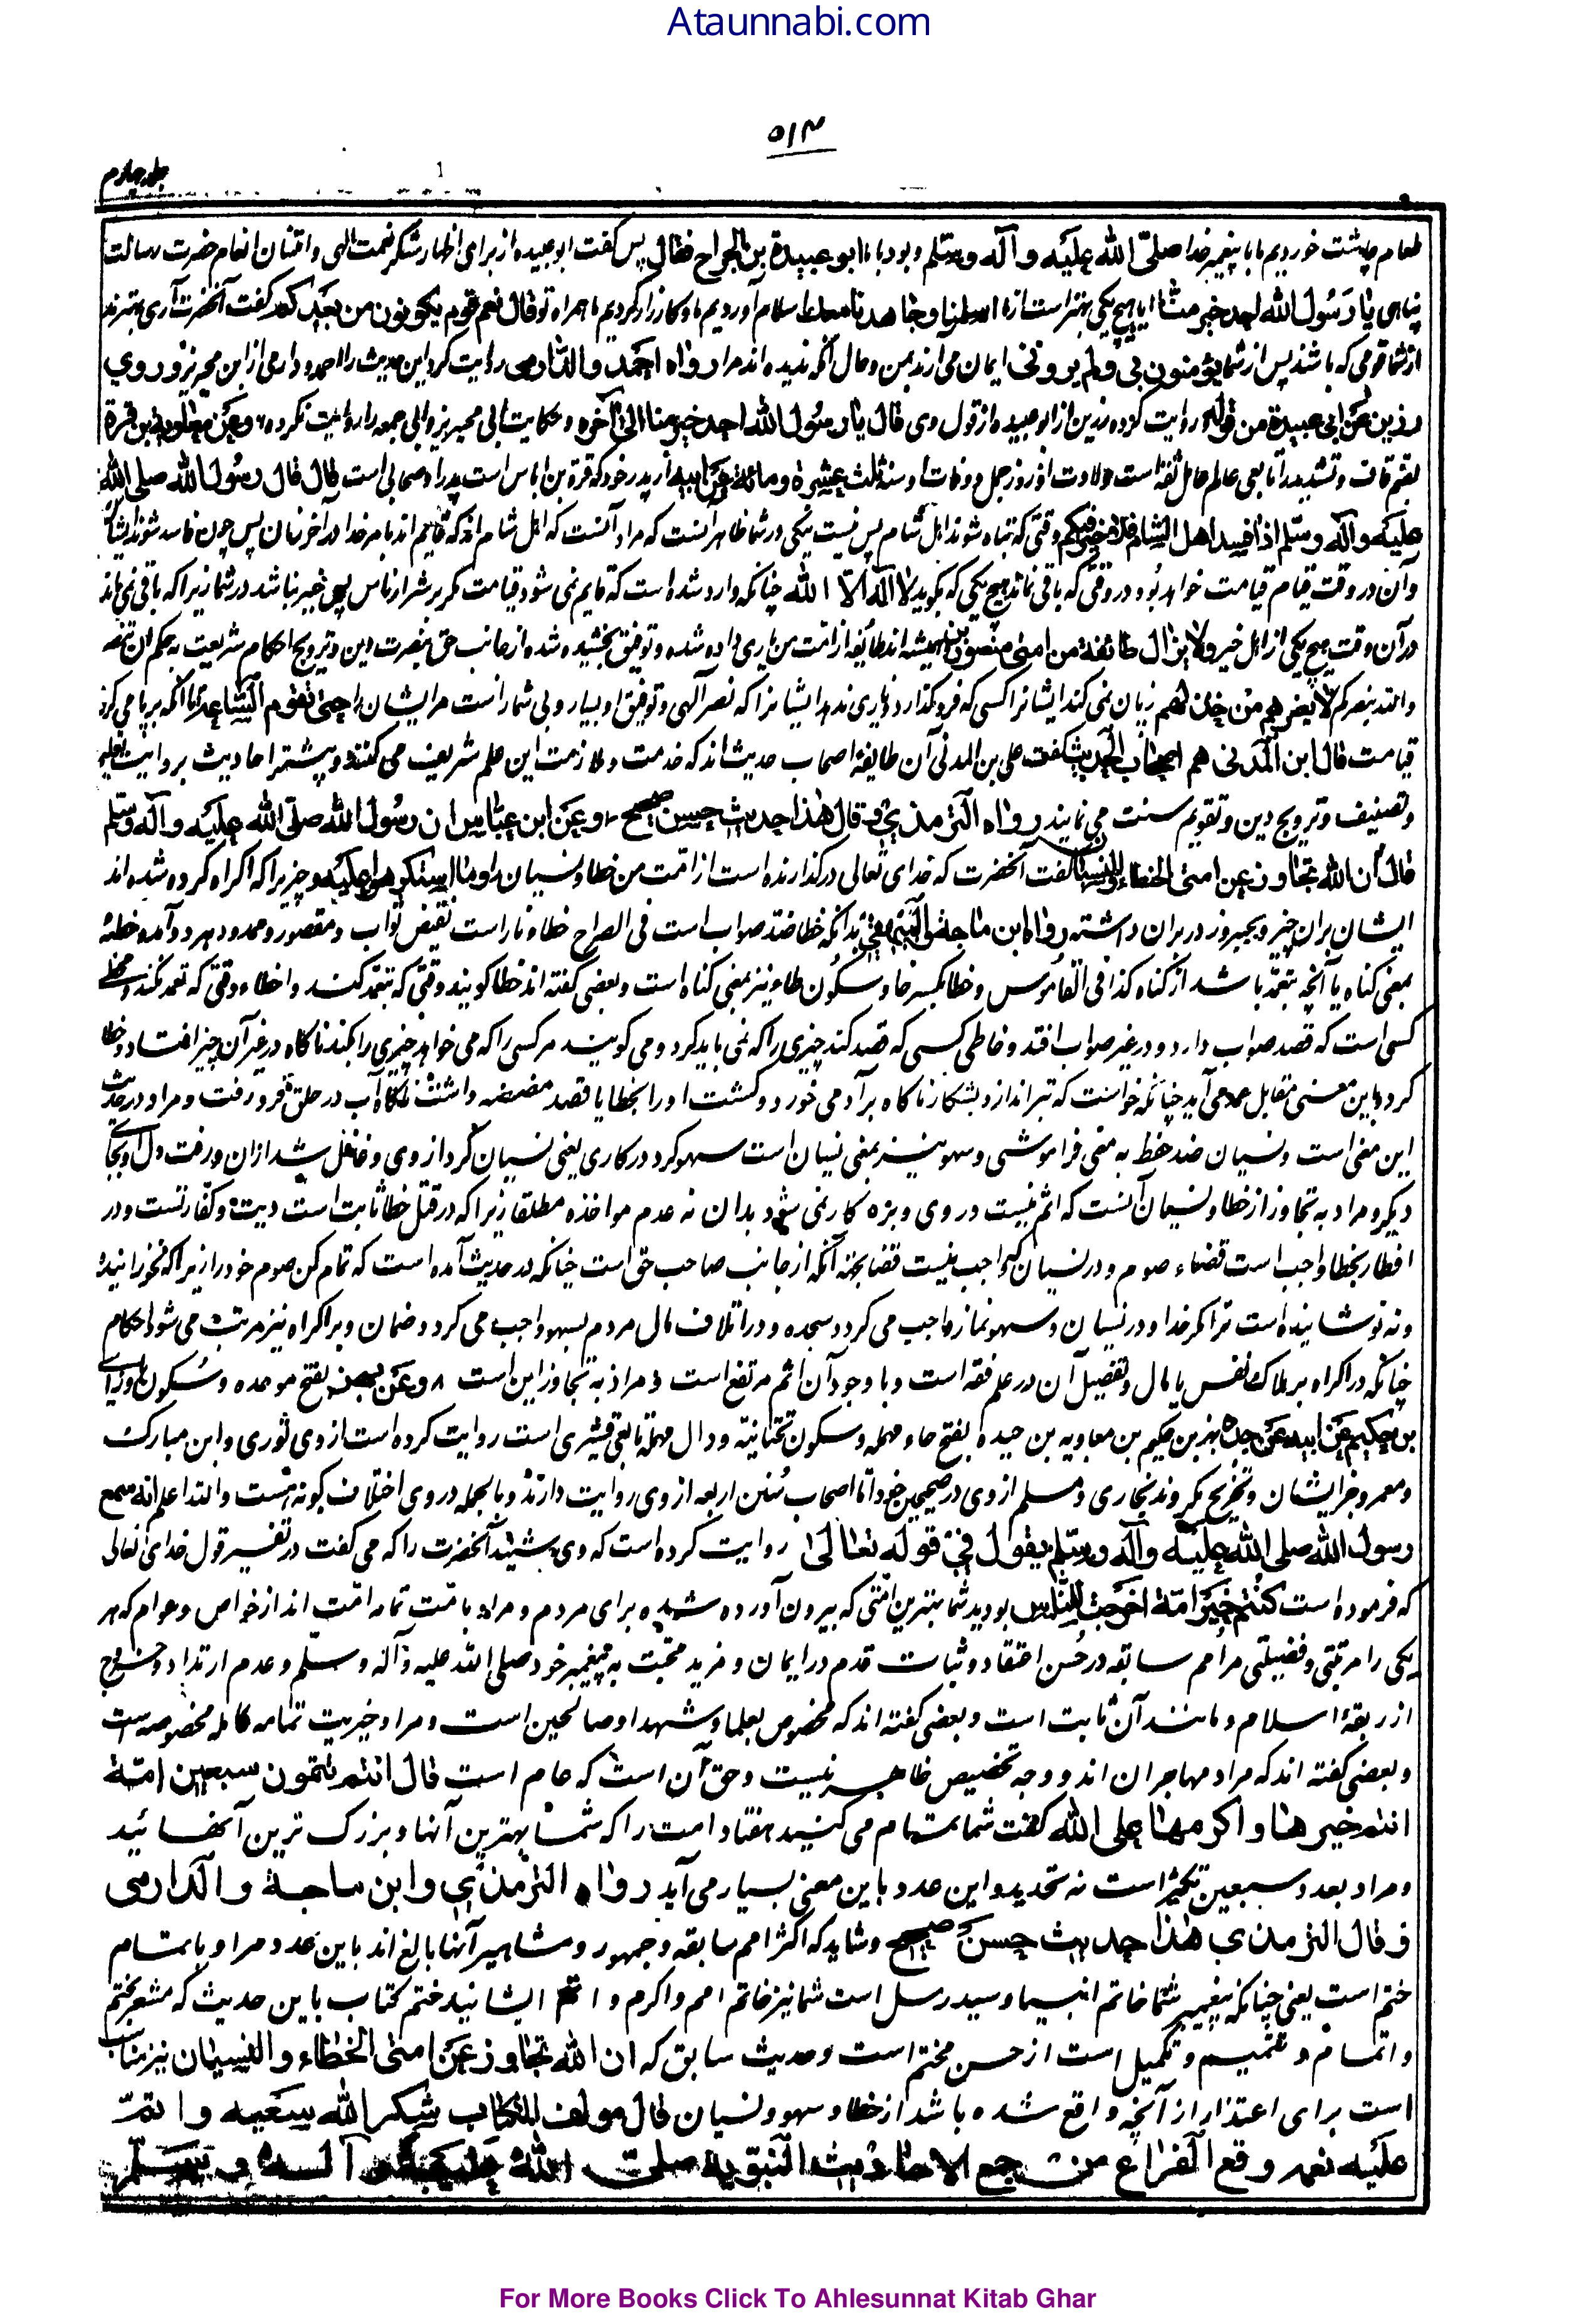 Ataunnabi.com
۵۱۴
جلد چهارم
طعام چاشت خوردیم ما با پیغمبر خدا صلی الله علیه و آله وسلم و بود با ما ابو عبیدة بن الجراح فقال پس گفت ابو عبیده از برای اظهار شکر نعمت الهی و امتنان انعام حضرت رسالت
پناهی یا رسول الله احد خیر منا آیا هیچ یکی بهتر است از ما اسلمنا وجاهدنا معک اسلام آوردیم ما و کارزار کردیم ما همراه تو قال نعم قوم یکونون من بعدکم گفت آنحضرت آری بهترند
از شما قومی که باشند پس از شما یؤمنون بی ولم یرونی ایمان می آرند بمن و حال آنکه ندیده اند مرا رواه احمد والدارمی روایت کرد این حدیث را احمد و دارمی از ابن محیریز وروی
رزین عن ابی عبیدة من قوله روایت کرده رزین از ابو عبیده از قول وی قال یا رسول الله احد خیر منا الی آخره و حکایت ابی محیریز و ابی جمعه را روایت نکرده ۶ وعن معاویة بن قرة
بضم قاف و تشدید را تابعی عالم عامل ثقه است ولادت او روز جمل و وفات او سنة ثلث عشرة ومائة عن ابیه از پدر خود که قرة بن ایاس است پدر او صحابی است قال قال رسول الله صلی الله
علیه و آله وسلم اذا فسد اهل الشام فلا خیر فیکم وقتی که تباه شوند اهل شام پس نیست نیکی در شما ظاهر آنست که مراد آنست که اهل شام اند که قایم اند بامر خدا در آخر زمان پس چون فاسد شوند ایشان
وآن در وقت قیام قیامت خواهد بود در وقتی که باقی نماند هیچ یکی که بگوید لا اله الا الله چنانکه وارد شده است که قایم نمی شود قیامت مگر بر شرار ناس پس خیر نباشد در شما زیرا که باقی نمی ماند
در آن وقت هیچ یکی از اهل خیر ولا یزال طائفة من امتی منصورین همیشه اند طایفه از امت من یاری داده شده و توفیق بخشیده شده از جانب حق بنصرت دین و ترویج احکام شریعت به حکم ان تنصروا
والله ینصرکم لا یضرهم من خذلهم زیان نمی کند ایشانرا کسی که فرو گذارد و یاری ندهد ایشانرا که نصر الهی و توفیق او بسیار و بی شمار است مر ایشان را حتی تقوم الساعة تا آنکه بر پا می گردد
قیامت قال ابن المدنی هم اصحاب الحدیث گفت علی بن المدنی آن طایفه اصحاب حدیث اند که خدمت و ملازمت این علم شریف می کنند و بیشتر احادیث بروایت تعلیم
و تصنیف و ترویج دین و تقویم سنت می نمایند رواه الترمذی و قال هذا حدیث حسن صحیح ۷ وعن ابن عباس ان رسول الله صلی الله علیه و آله وسلم
قال ان الله تجاوز عن امتی الخطاء والنسیان گفت آنحضرت که خدای تعالی در گذارنده است از امت من خطا و نسیان را وما استکرهوا علیه و چیزیرا که اکراه کرده شده اند
ایشان بران چیز و بجبر و زور بران داشته رواه ابن ماجة والبیهقی بدانکه خطا ضد صواب است فی الصراح خطاء ناراست نقیض ثواب و مقصور و ممدود هر دو آمده خطئه
بمعنی گناه یا آنچه بتعمد باشد از گناه کذا فی القاموس و خطا بکسر خا و سکون طاء نیز بمعنی گناه است و بعضی گفته اند خطا گویند وقتی که تعمد کند و اخطاء وقتی که تعمد نکند و مخطی
کسی است که قصد صواب دارد و در غیر صواب افتد و خاطی کسی که قصد کند چیزی را که نمی باید کرد و می گویند مر کسی را که می خواهد چیزی را بکند ناگاه در غیر آن چیز افتاد و خطا
کرد و باین معنی مقابل عمد می آید چنانکه خواست که تیر اندازد بشکار ناگاه بر آدمی خورد و کشت او را بخطا یا قصد مضمضه داشت ناگاه آب در حلق فرو رفت و مراد در حدیث
این معنی است و نسیان ضد حفظ به معنی فراموشی و سهو نیز بمعنی نسیان است سهو کرد در کاری یعنی نسیان کرد از وی و غافل شد ازان و رفت دل او بجای
دیگر و مراد به تجاوز از خطا و نسیان آنست که اثم نیست در وی و بزه کار نمی شود بدان نه عدم مواخذه مطلقا زیرا که در قتل خطا ثابت است دیت و کفارتست و در
افطار بخطا واجب است قضاء صوم و در نسیان که واجب نیست قضا بجهة آنکه از جانب صاحب حق است چنانکه در حدیث آمده است که تمام کن صوم خود را زیرا که نخورانیده
و نه نوشانیده است ترا مگر خدا و در نسیان و سهو نماز واجب می گردد سجده و در اتلاف مال مردم بسهو واجب می گردد ضمان و بر اکراه نیز مرتب می شود احکام
چنانکه در اکراه بر هلاک نفس یا مال و تفصیل آن در علم فقه است و با وجود آن اثم مرتفع است و مراد به تجاوز این است ۸ وعن بهز بفتح موحده و سکون ها و زای
بن حکیم عن ابیه عن جده بهز بن حکیم بن معاویه بن حیده بفتح حاء مهمله و سکون تحتانیة و دال مهمله تابعی قشیری است روایت کرده است از وی ثوری و ابن مبارک
و معمر و جز ایشان و تخریج نکردند بخاری و مسلم از وی در صحیحین خود اما اصحاب سنن اربعه از وی روایت دارند و بالجمله در وی اختلاف گونه هست والله اعلم انه سمع
رسول الله صلی الله علیه و آله وسلم یقول فی قوله تعالی روایت کرده است که وی شنید آنحضرت را که می گفت در تفسیر قول خدای تعالی
که فرموده است کنتم خیر امة اخرجت للناس بودید شما بهترین امتی که بیرون آورده شده برای مردم و مراد بامت تمامه امت اند از خواص و عوام که هر
یکی را مرتبتی و فضیلتی مر امم سابقه در حسن اعتقاد و ثبات قدم در ایمان و مزید محبت به پیغمبر خود صلی الله علیه و آله وسلم و عدم ارتداد و خروج
از ربقهٔ اسلام و مانند آن ثابت است و بعضی گفته اند که مخصوص بعلما و شهدا و صالحین است و مراد خیریت تمامه کامله مخصوصه است
و بعضی گفته اند که مراد مهاجران اند و وجه تخصیص ظاهر نیست و حق آن است که عام است قال انتم تتمون سبعین امة
انتم خیرها واکرمها علی الله گفت شما تمام می کنید هفتاد امت را که شما بهترین آنها و بزرگ ترین آنهائید
و مراد بعدد سبعین تکثیر است نه تحدید و این عدد باین معنی بسیار می آید رواه الترمذی وابن ماجة والدارمی
وقال الترمذی هذا حدیث حسن صحیح و شاید که اکثر امم سابقه و جمهور و مشاهیر آنها بالغ اند باین عدد مراد باتمام
ختم است یعنی چنانکه پیغمبر شما خاتم انبیا و سید رسل است شما نیز خاتم امم و اکرم و اتم ایشانید ختم کتاب باین حدیث که مشعر بختم
و اتمام و تتمیم و تکمیل است از حسن مختتم است و حدیث سابق که ان الله تجاوز عن امتی الخطاء والنسیان نیز مناسب
است برای اعتذار از آنچه واقع شده باشد از خطا و سهو و نسیان قال مولف الکتاب شکر الله سعیه واتم
علیه نعمه وقع الفراغ من جمع الاحادیث النبویه صلی الله علیه و آله وسلم
For More Books Click To Ahlesunnat Kitab Ghar